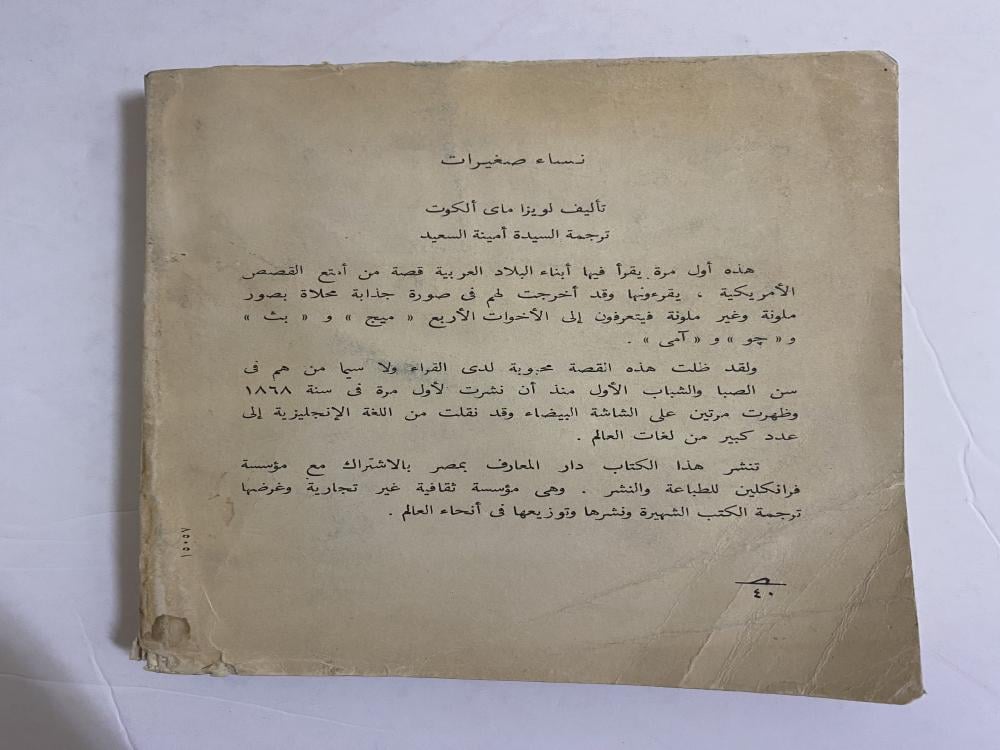 نساء صغيرات
تأليف لويزا ماى ألكوت
ترجمة السيدة أمينة السعيد
هذه أول مرة يقرأ فيها أبناء البلاد العربية قصة من أمتع القصص
الأمريكية ، يقرءونها وقد أخرجت لهم فى صورة جذابة محلاة بصور
ملونة وغير ملونة فيتعرفون إلى الأخوات الأربع « ميج » و « بث »
و « چو » و « آمى » .
ولقد ظلت هذه القصة محبوبة لدى القراء ولا سيما من هم فى
سن الصبا والشباب الأول منذ أن نشرت لأول مرة فى سنة ١٨٦٨
وظهرت مرتين على الشاشة البيضاء وقد نقلت من اللغة الإنجليزية إلى
عدد كبير من لغات العالم .
تنشر هذا الكتاب دار المعارف بمصر بالاشتراك مع مؤسسة
فرانكلين للطباعة والنشر . وهى مؤسسة ثقافية غير تجارية وغرضها
ترجمة الكتب الشهيرة ونشرها وتوزيعها فى أنحاء العالم .
٤٠